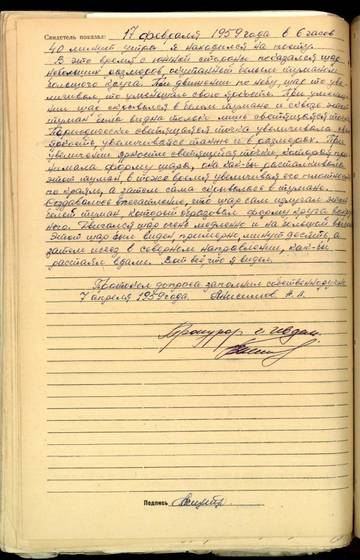 Свидетель показал: 17 февраля 1959 года в 6 часов
40 минут утра я находился на посту.
В это время с южной стороны показался шар
больших размеров, окутанный белым туманом
большого круга. При движении по небу, шар то уве-
личивал, то уменьшал свою яркость. При уменьше-
нии шар скрывался в белом тумане и сквозь этот
туман была видна только лишь светящаяся точка.
Периодически светящаяся точка увеличивала свою
яркость, увеличиваясь также и в размерах. При
увеличении яркости светящейся точки, которая при-
нимала форму шара, она как-бы расталкивала
этот туман, в тоже время увеличивая его плотность
по краям, а затем сама скрывалась в тумане.
Создавалось впечатление, что шар сам излучает этот
белый туман, который образовал форму круга
Двигался шар очень медленно и на большой высоте
Этот шар был виден примерно минут десять, а
затем исчез в северном направлении, как-бы
растаял вдали. Вот всё что я видел.
Протокол допроса заполнил собственноручно
7 апреля 1959 года. Анисимов А.Л.
Прокурор г. Ивдель
Подпись